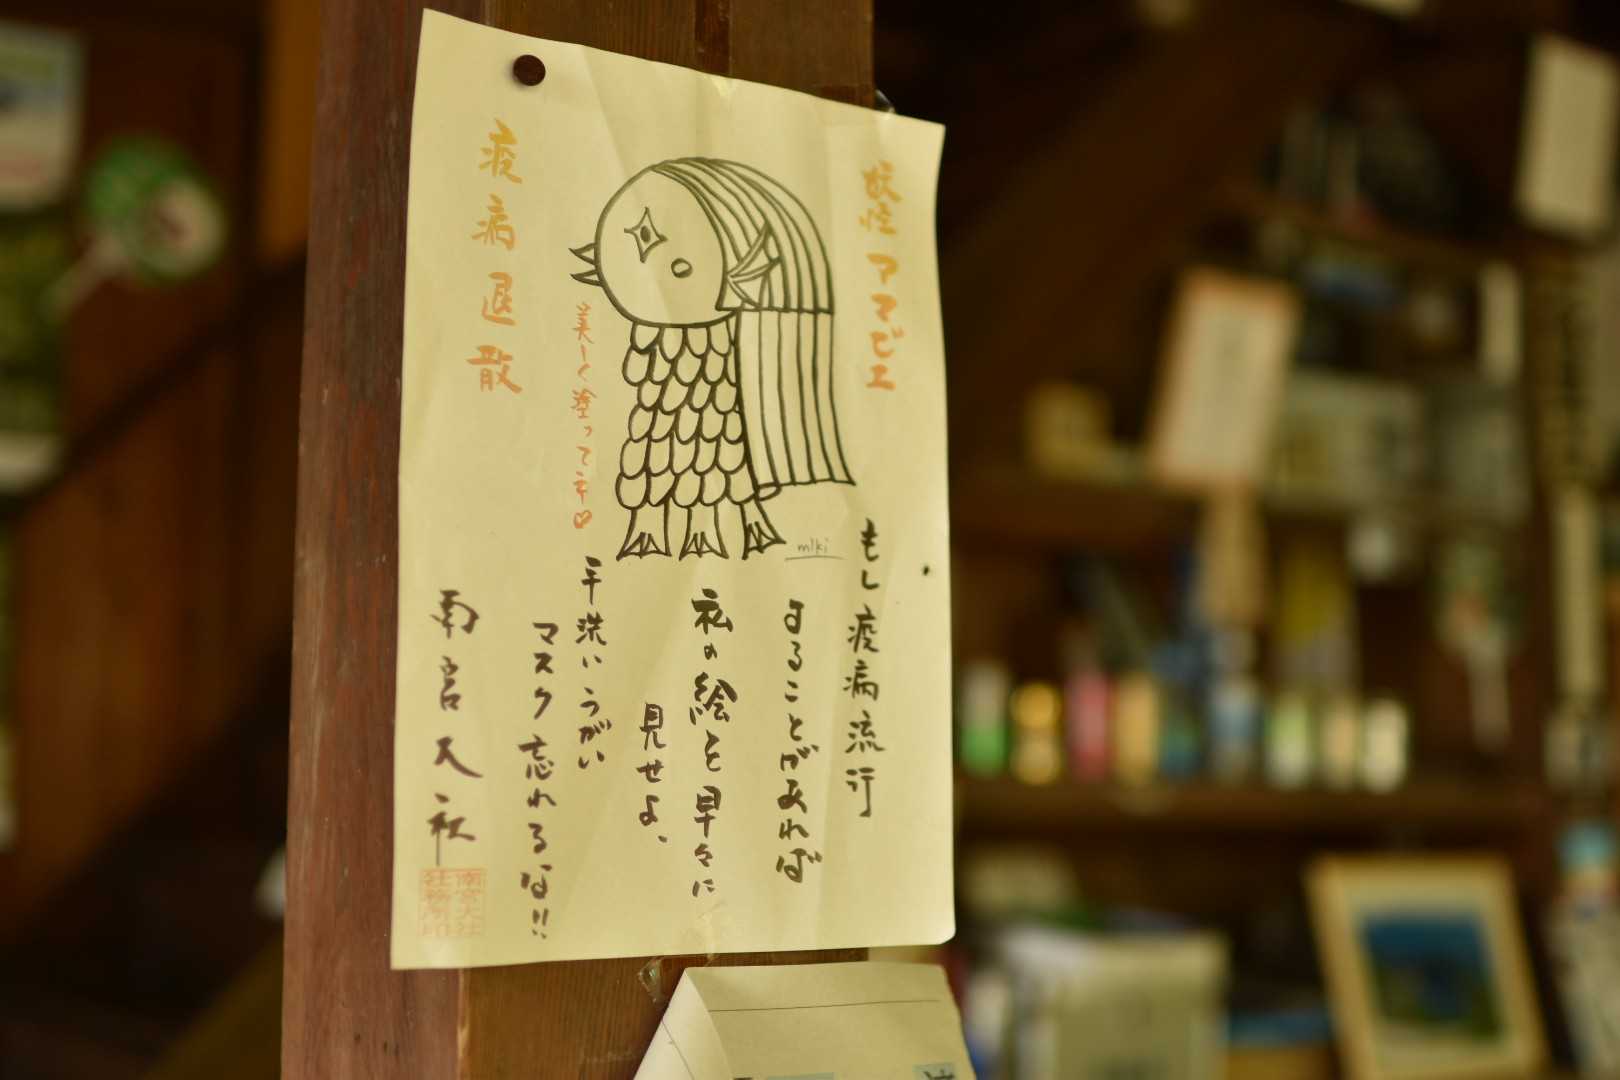 妖怪 アマビエ
もし疫病流行
することがあれば
私の絵を早々に
見せよ、
手洗いうがい
マスク忘れるな!!
美しく塗ってネ♡
疫病退散
南宮大社
南宮大社
社務所印
miki